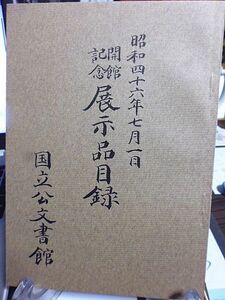 昭和四十六年七月一日
開館
記念
展示品目録
国立公文書館